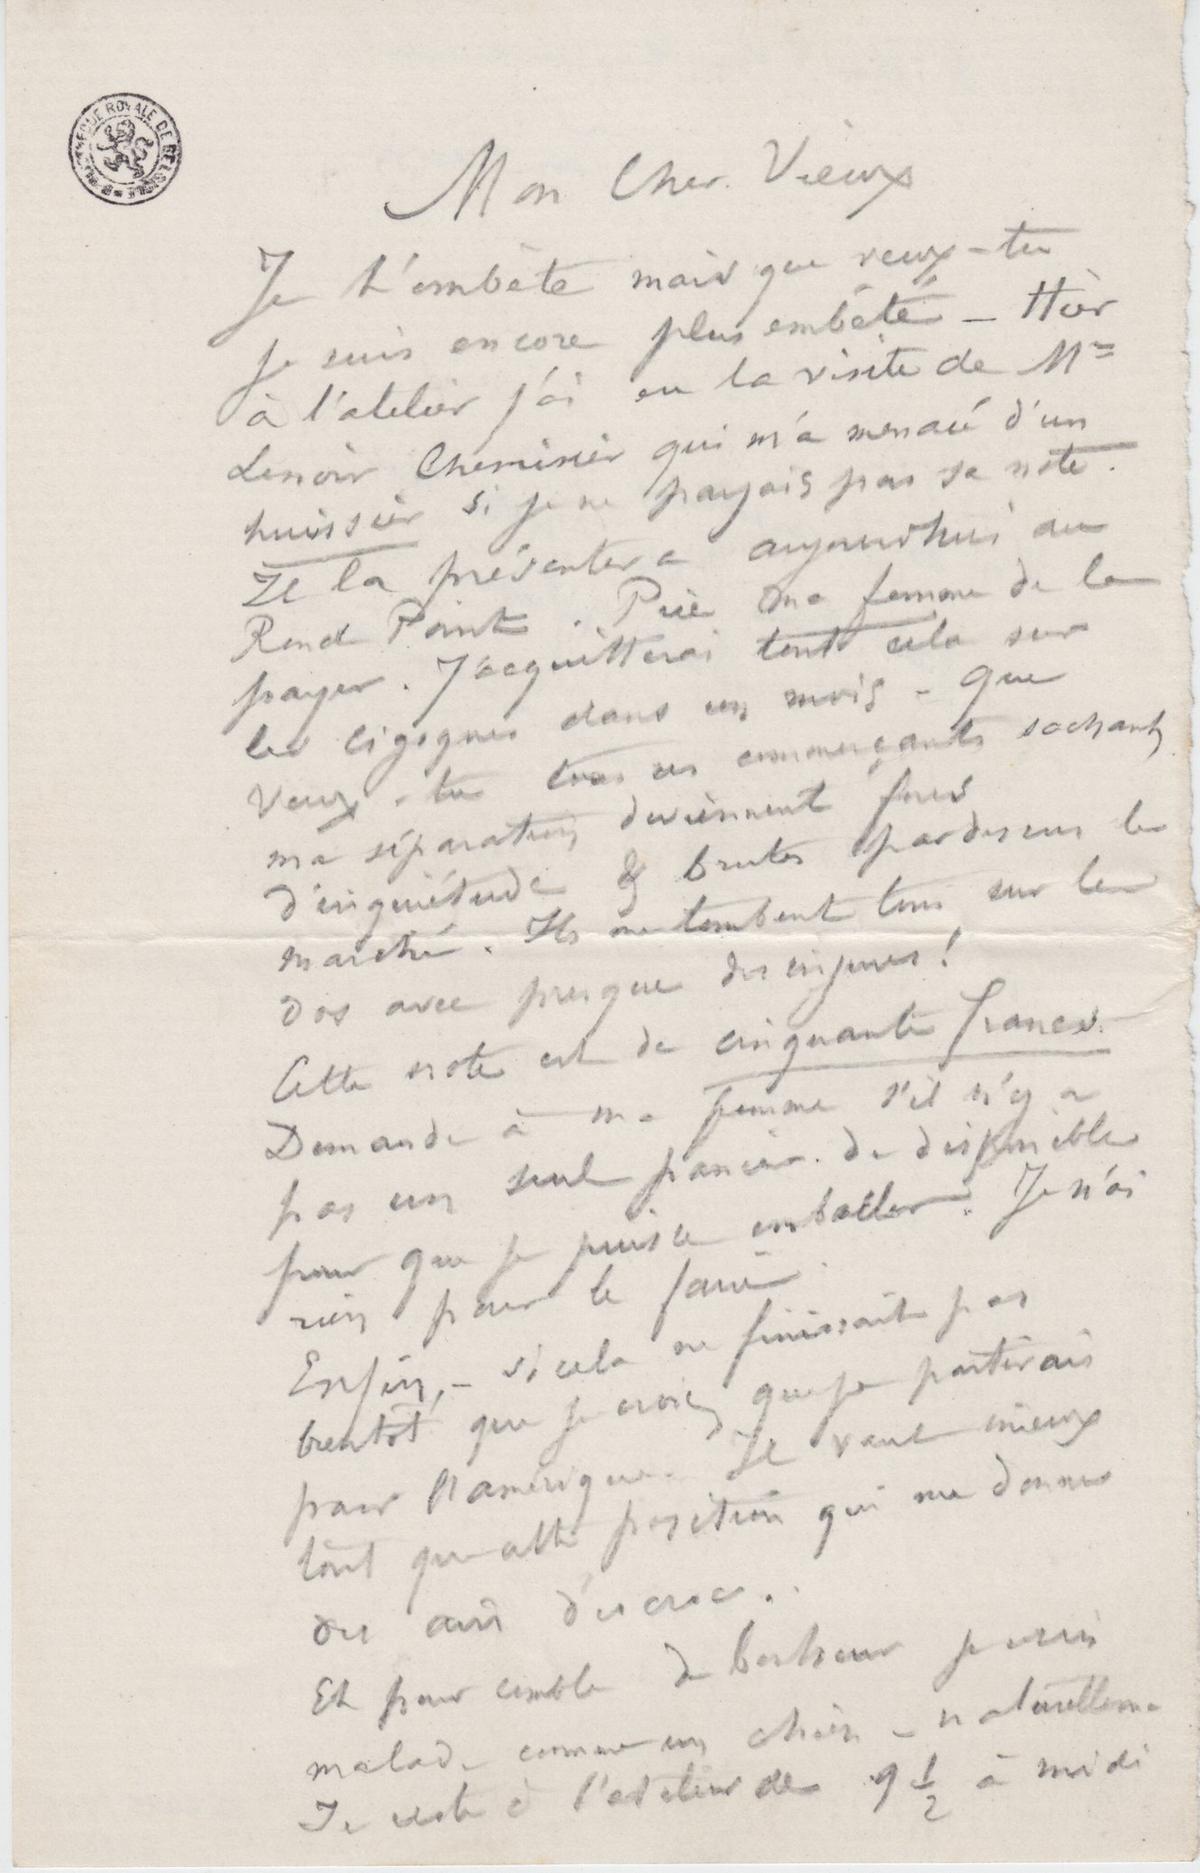 BIBLIOTHÈQUE ROYALE DE BELGIQUE
Mon Cher Vieux
Je t'embète mais que veux-tu
je suis encore plus embété – Hier
à l'atelier j'ai eu la visite de Mr
Lenoir Chemisier qui m'a menacé d'un
huissier si je ne payais pas sa note.
Il la présentera aujourd'hui au
Rond Point. Prie ma femme de la
payer. J'acquitterai tout cela sur
les cigognes dans un mois – Que
veux-tu tous ces commerçants sachant
ma séparation deviennent fous
d'inquiétude & brutes pardessus le
marché. Ils me tombent tous sur le
dos avec presque des injures!
Cette note est de cinquante francs.
Demande à ma femme s'il n'y a
pas un seul panier de disponible
pour que je puisse emballer. Je n'ai
rien pour le faire.
Enfin, – si cela ne finissait pas
bientôt que je crois que je partirais
pour l'amérique. Il vaut mieux
tout que cette position qui me donne
des airs d'escroc.
Et pour comble de bonheur je suis
malade comme un chien – naturellem
Je reste à l'atelier de 9 1/2 à midi